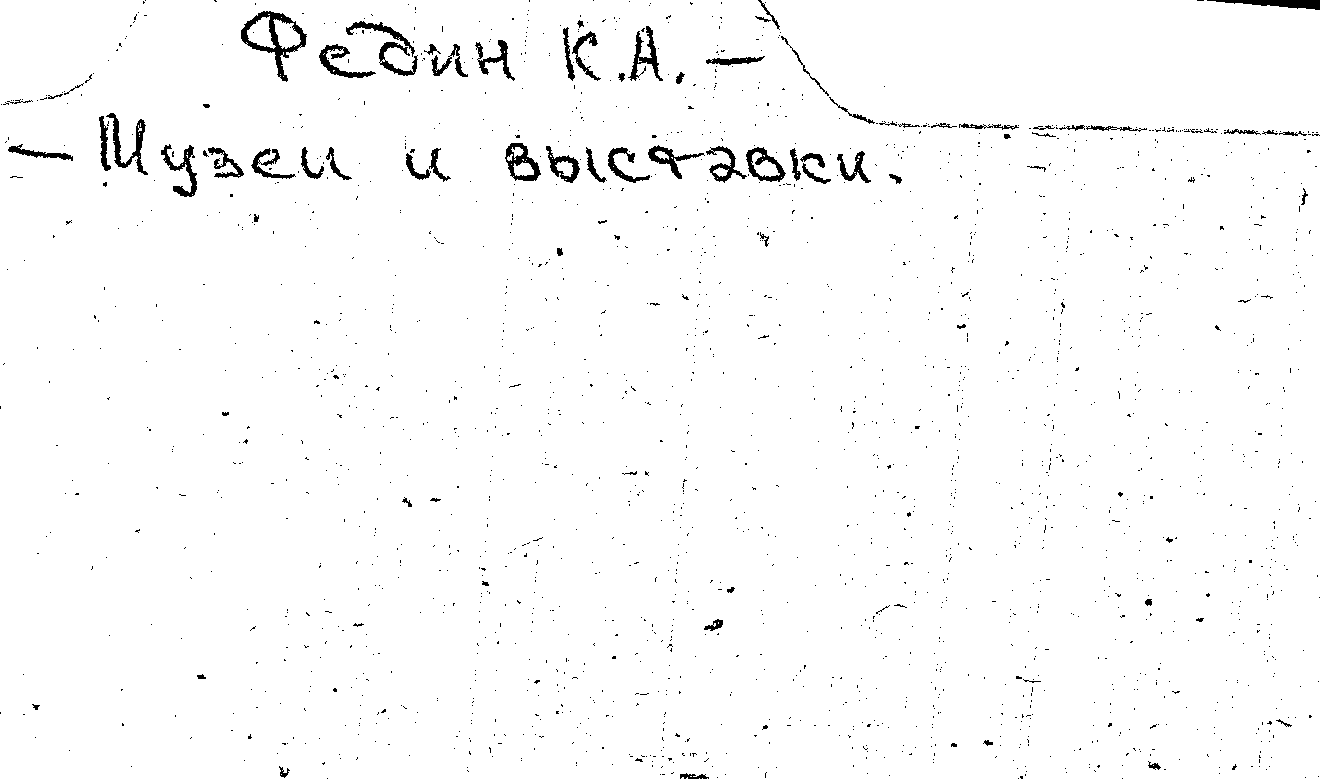 Федин К.А. —
— Музеи и выставки.